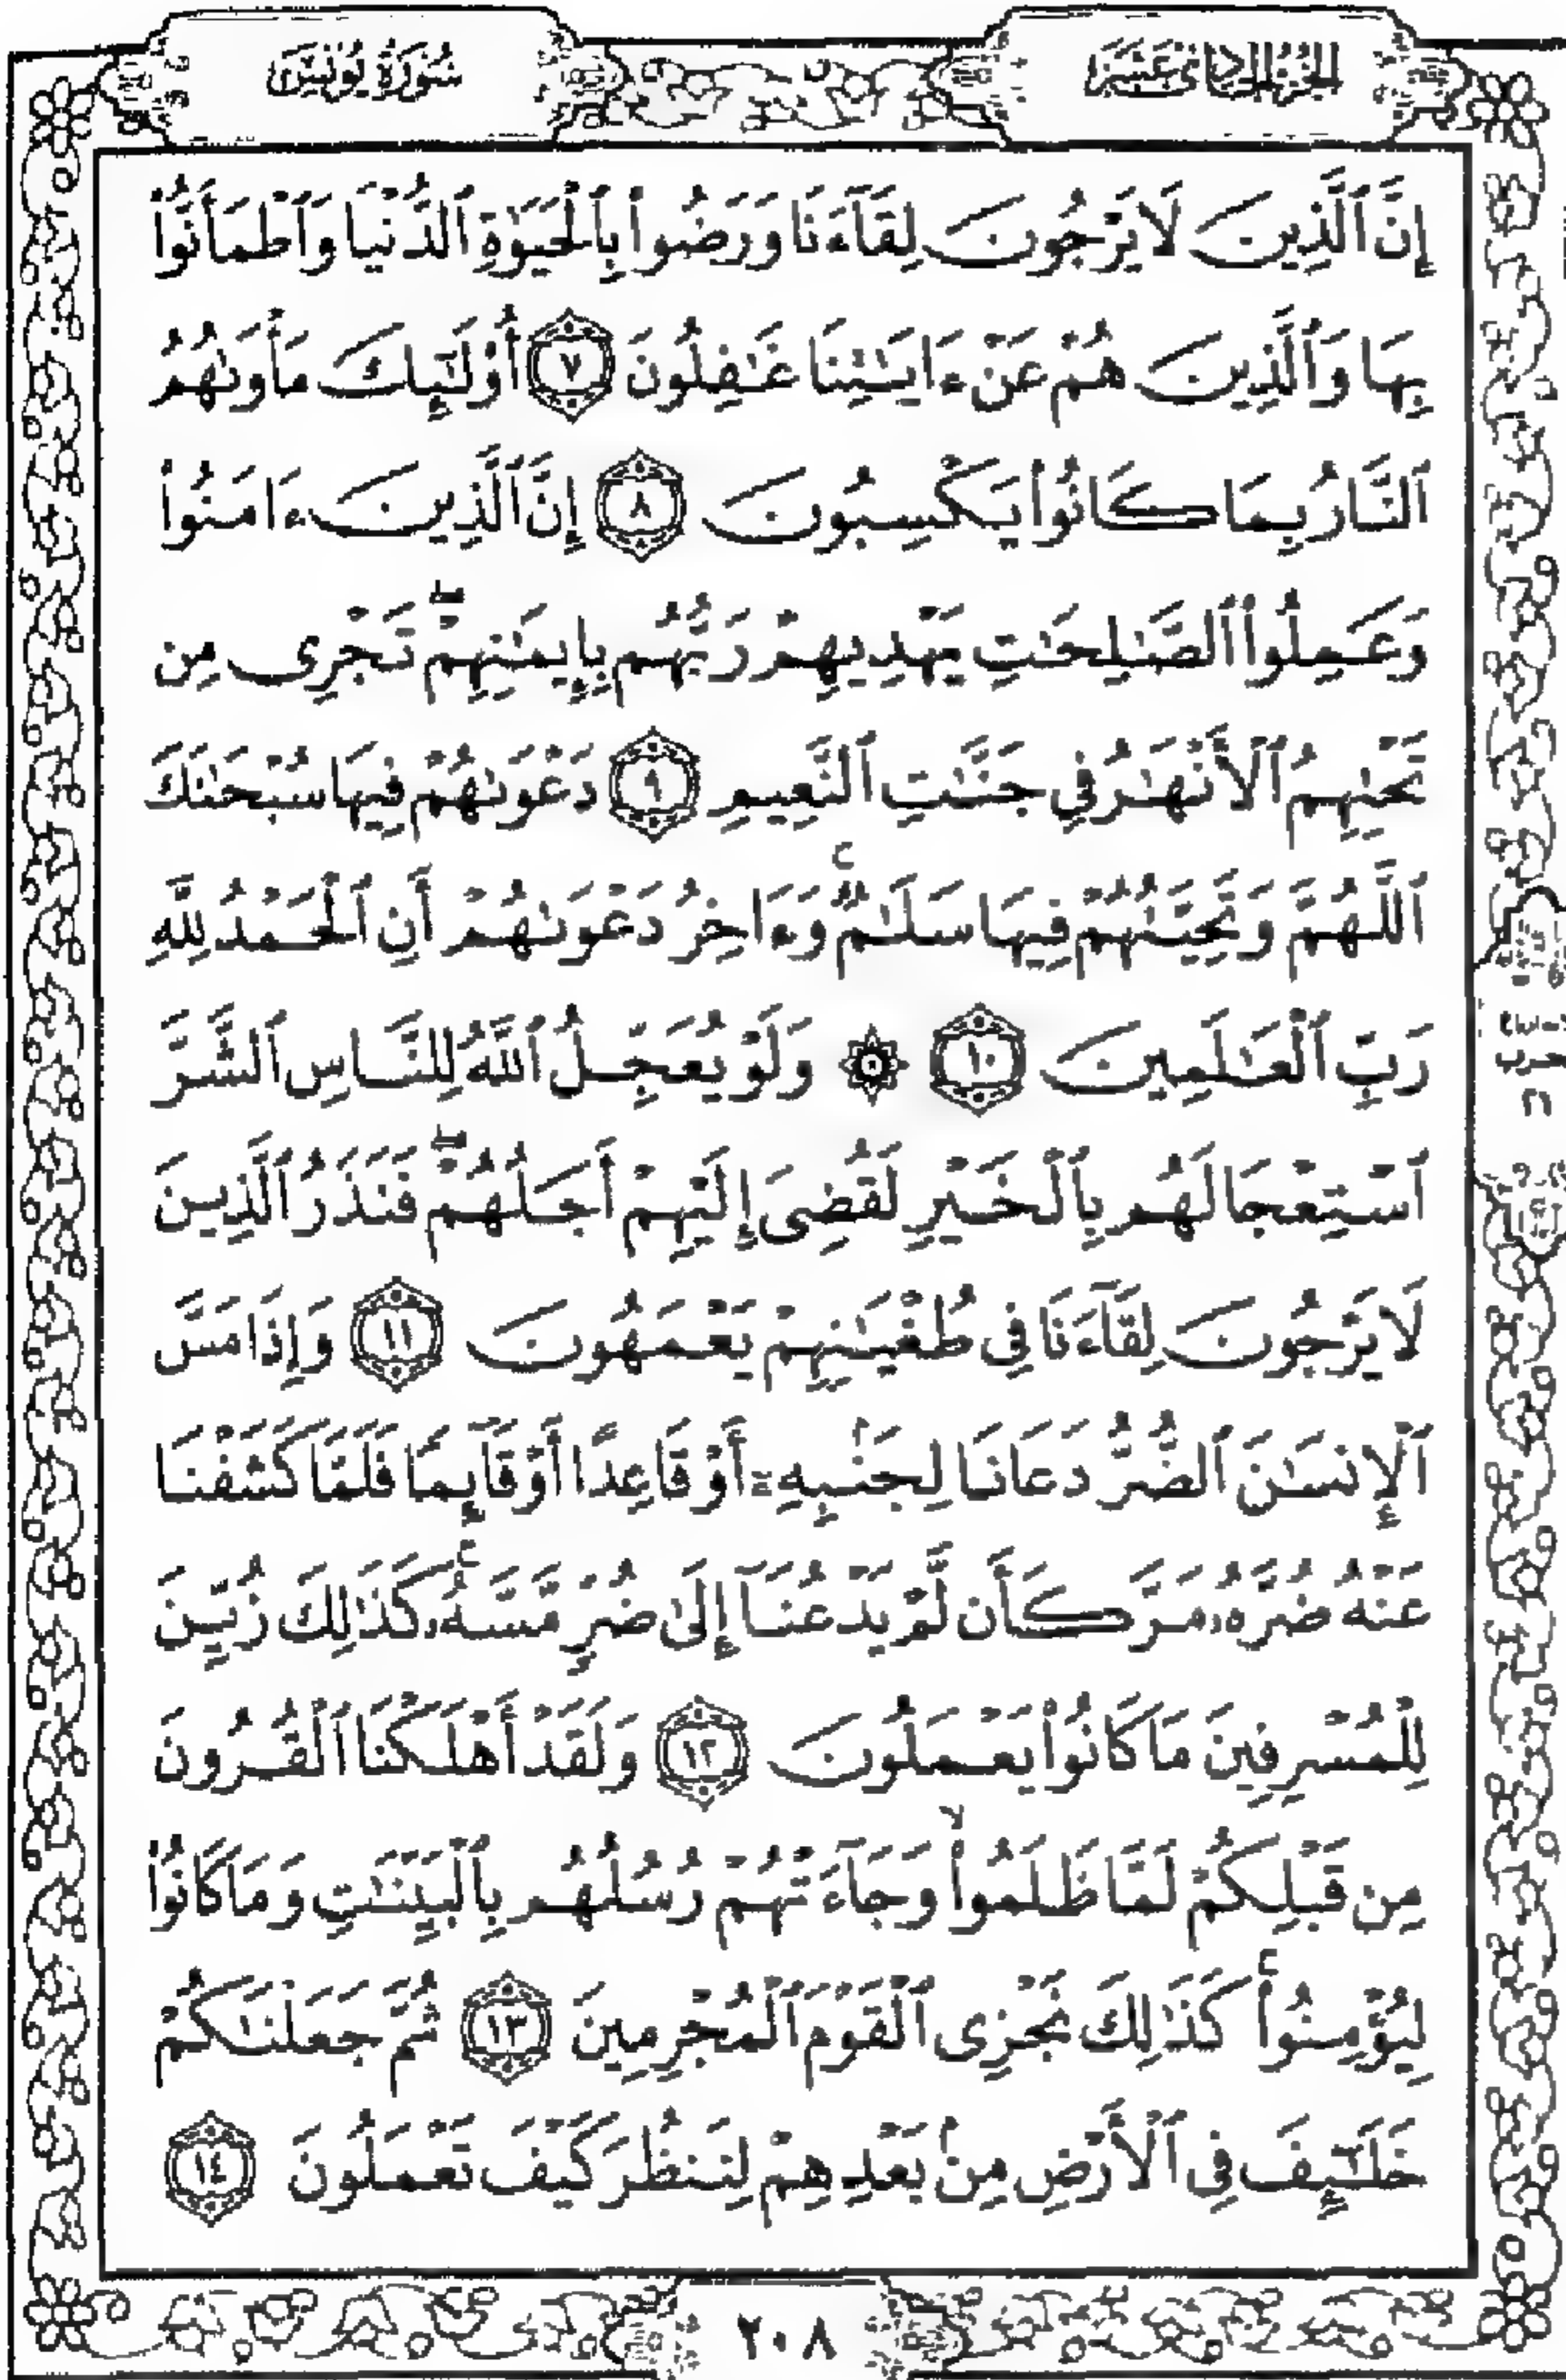 الجزء الحادي عشر
سورة يونس
إِنَّ ٱلَّذِينَ لَا يَرْجُونَ لِقَآءَنَا وَرَضُوا۟ بِٱلْحَيَوٰةِ ٱلدُّنْيَا وَٱطْمَأَنُّوا۟
بِهَا وَٱلَّذِينَ هُمْ عَنْ ءَايَـٰتِنَا غَـٰفِلُونَ ٧ أُو۟لَـٰٓئِكَ مَأْوَىٰهُمُ
ٱلنَّارُ بِمَا كَانُوا۟ يَكْسِبُونَ ٨ إِنَّ ٱلَّذِينَ ءَامَنُوا۟
وَعَمِلُوا۟ ٱلصَّـٰلِحَـٰتِ يَهْدِيهِمْ رَبُّهُم بِإِيمَـٰنِهِمْ ۖ تَجْرِى مِن
تَحْتِهِمُ ٱلْأَنْهَـٰرُ فِى جَنَّـٰتِ ٱلنَّعِيمِ ٩ دَعْوَىٰهُمْ فِيهَا سُبْحَـٰنَكَ
ٱللَّهُمَّ وَتَحِيَّتُهُمْ فِيهَا سَلَـٰمٌ ۚ وَءَاخِرُ دَعْوَىٰهُمْ أَنِ ٱلْحَمْدُ لِلَّهِ
رَبِّ ٱلْعَـٰلَمِينَ ١٠ ۞ وَلَوْ يُعَجِّلُ ٱللَّهُ لِلنَّاسِ ٱلشَّرَّ
ٱسْتِعْجَالَهُم بِٱلْخَيْرِ لَقُضِىَ إِلَيْهِمْ أَجَلُهُمْ ۖ فَنَذَرُ ٱلَّذِينَ
لَا يَرْجُونَ لِقَآءَنَا فِى طُغْيَـٰنِهِمْ يَعْمَهُونَ ١١ وَإِذَا مَسَّ
ٱلْإِنسَـٰنَ ٱلضُّرُّ دَعَانَا لِجَنۢبِهِۦٓ أَوْ قَاعِدًا أَوْ قَآئِمًا فَلَمَّا كَشَفْنَا
عَنْهُ ضُرَّهُۥ مَرَّ كَأَن لَّمْ يَدْعُنَآ إِلَىٰ ضُرٍّ مَّسَّهُۥ ۚ كَذَٰلِكَ زُيِّنَ
لِلْمُسْرِفِينَ مَا كَانُوا۟ يَعْمَلُونَ ١٢ وَلَقَدْ أَهْلَكْنَا ٱلْقُرُونَ
مِن قَبْلِكُمْ لَمَّا ظَلَمُوا۟ ۙ وَجَآءَتْهُمْ رُسُلُهُم بِٱلْبَيِّنَـٰتِ وَمَا كَانُوا۟
لِيُؤْمِنُوا۟ ۚ كَذَٰلِكَ نَجْزِى ٱلْقَوْمَ ٱلْمُجْرِمِينَ ١٣ ثُمَّ جَعَلْنَـٰكُمْ
خَلَـٰٓئِفَ فِى ٱلْأَرْضِ مِنۢ بَعْدِهِمْ لِنَنظُرَ كَيْفَ تَعْمَلُونَ ١٤
٢٠٨